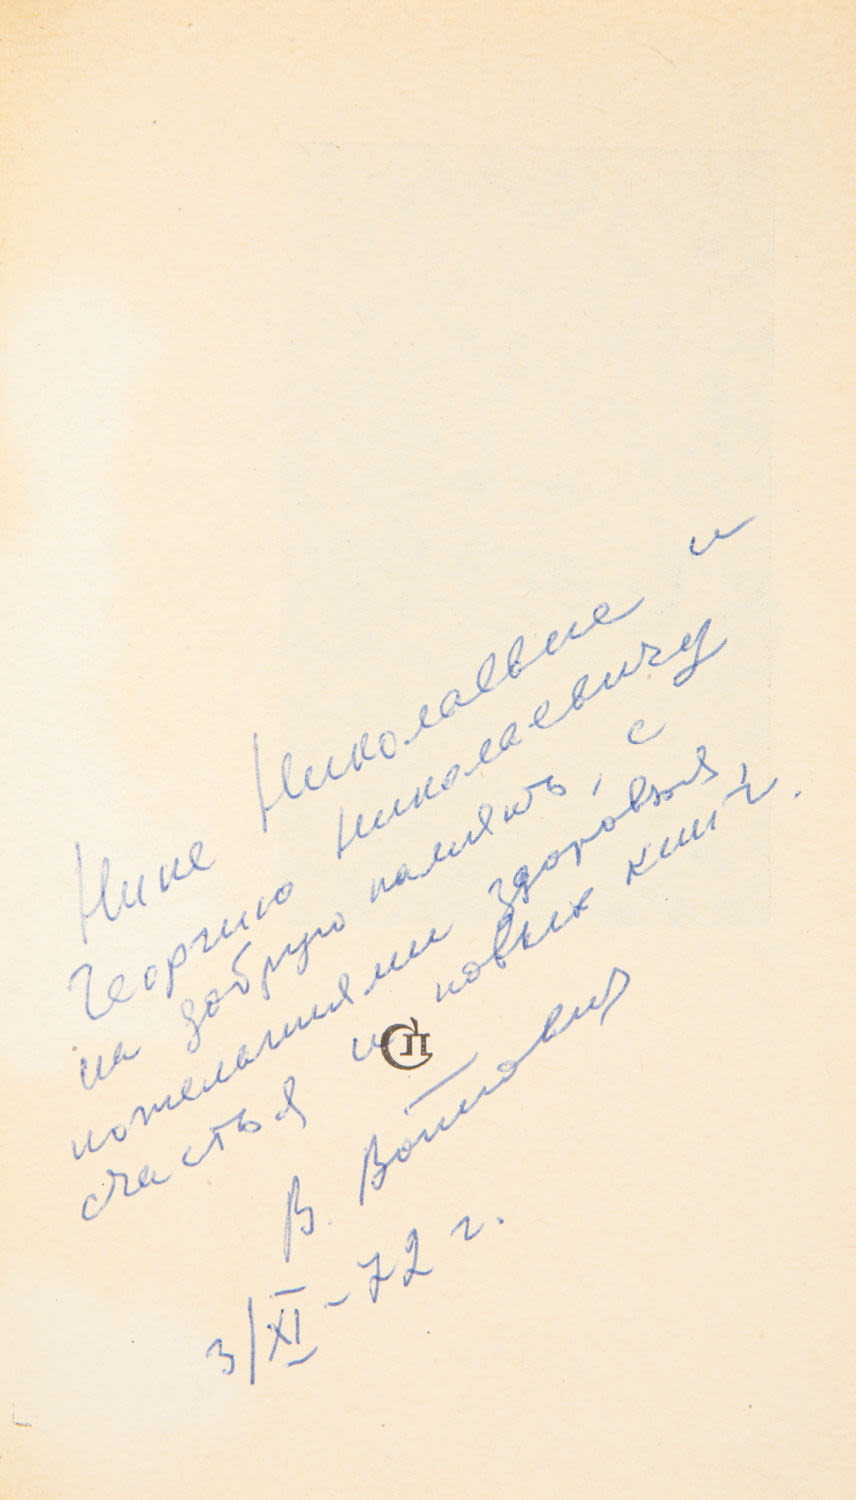 Нине Николаевне и
Георгию Николаевичу
на добрую память, с
пожеланиями здоровья,
счастья и новых книг.
СП
В. Войнович
3/XI-72 г.